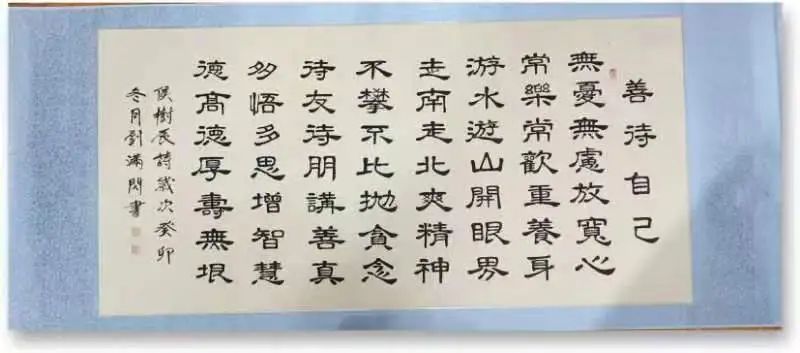 善待自己
無憂無慮放寬心
常樂常歡重養身
游水遊山開眼界
走南走北爽精神
不攀不比抛貪念
待友待朋講善真
多悟多思增智慧
德高德厚壽無垠
侯樹辰詩歲次癸卯
冬月劉滿閃書